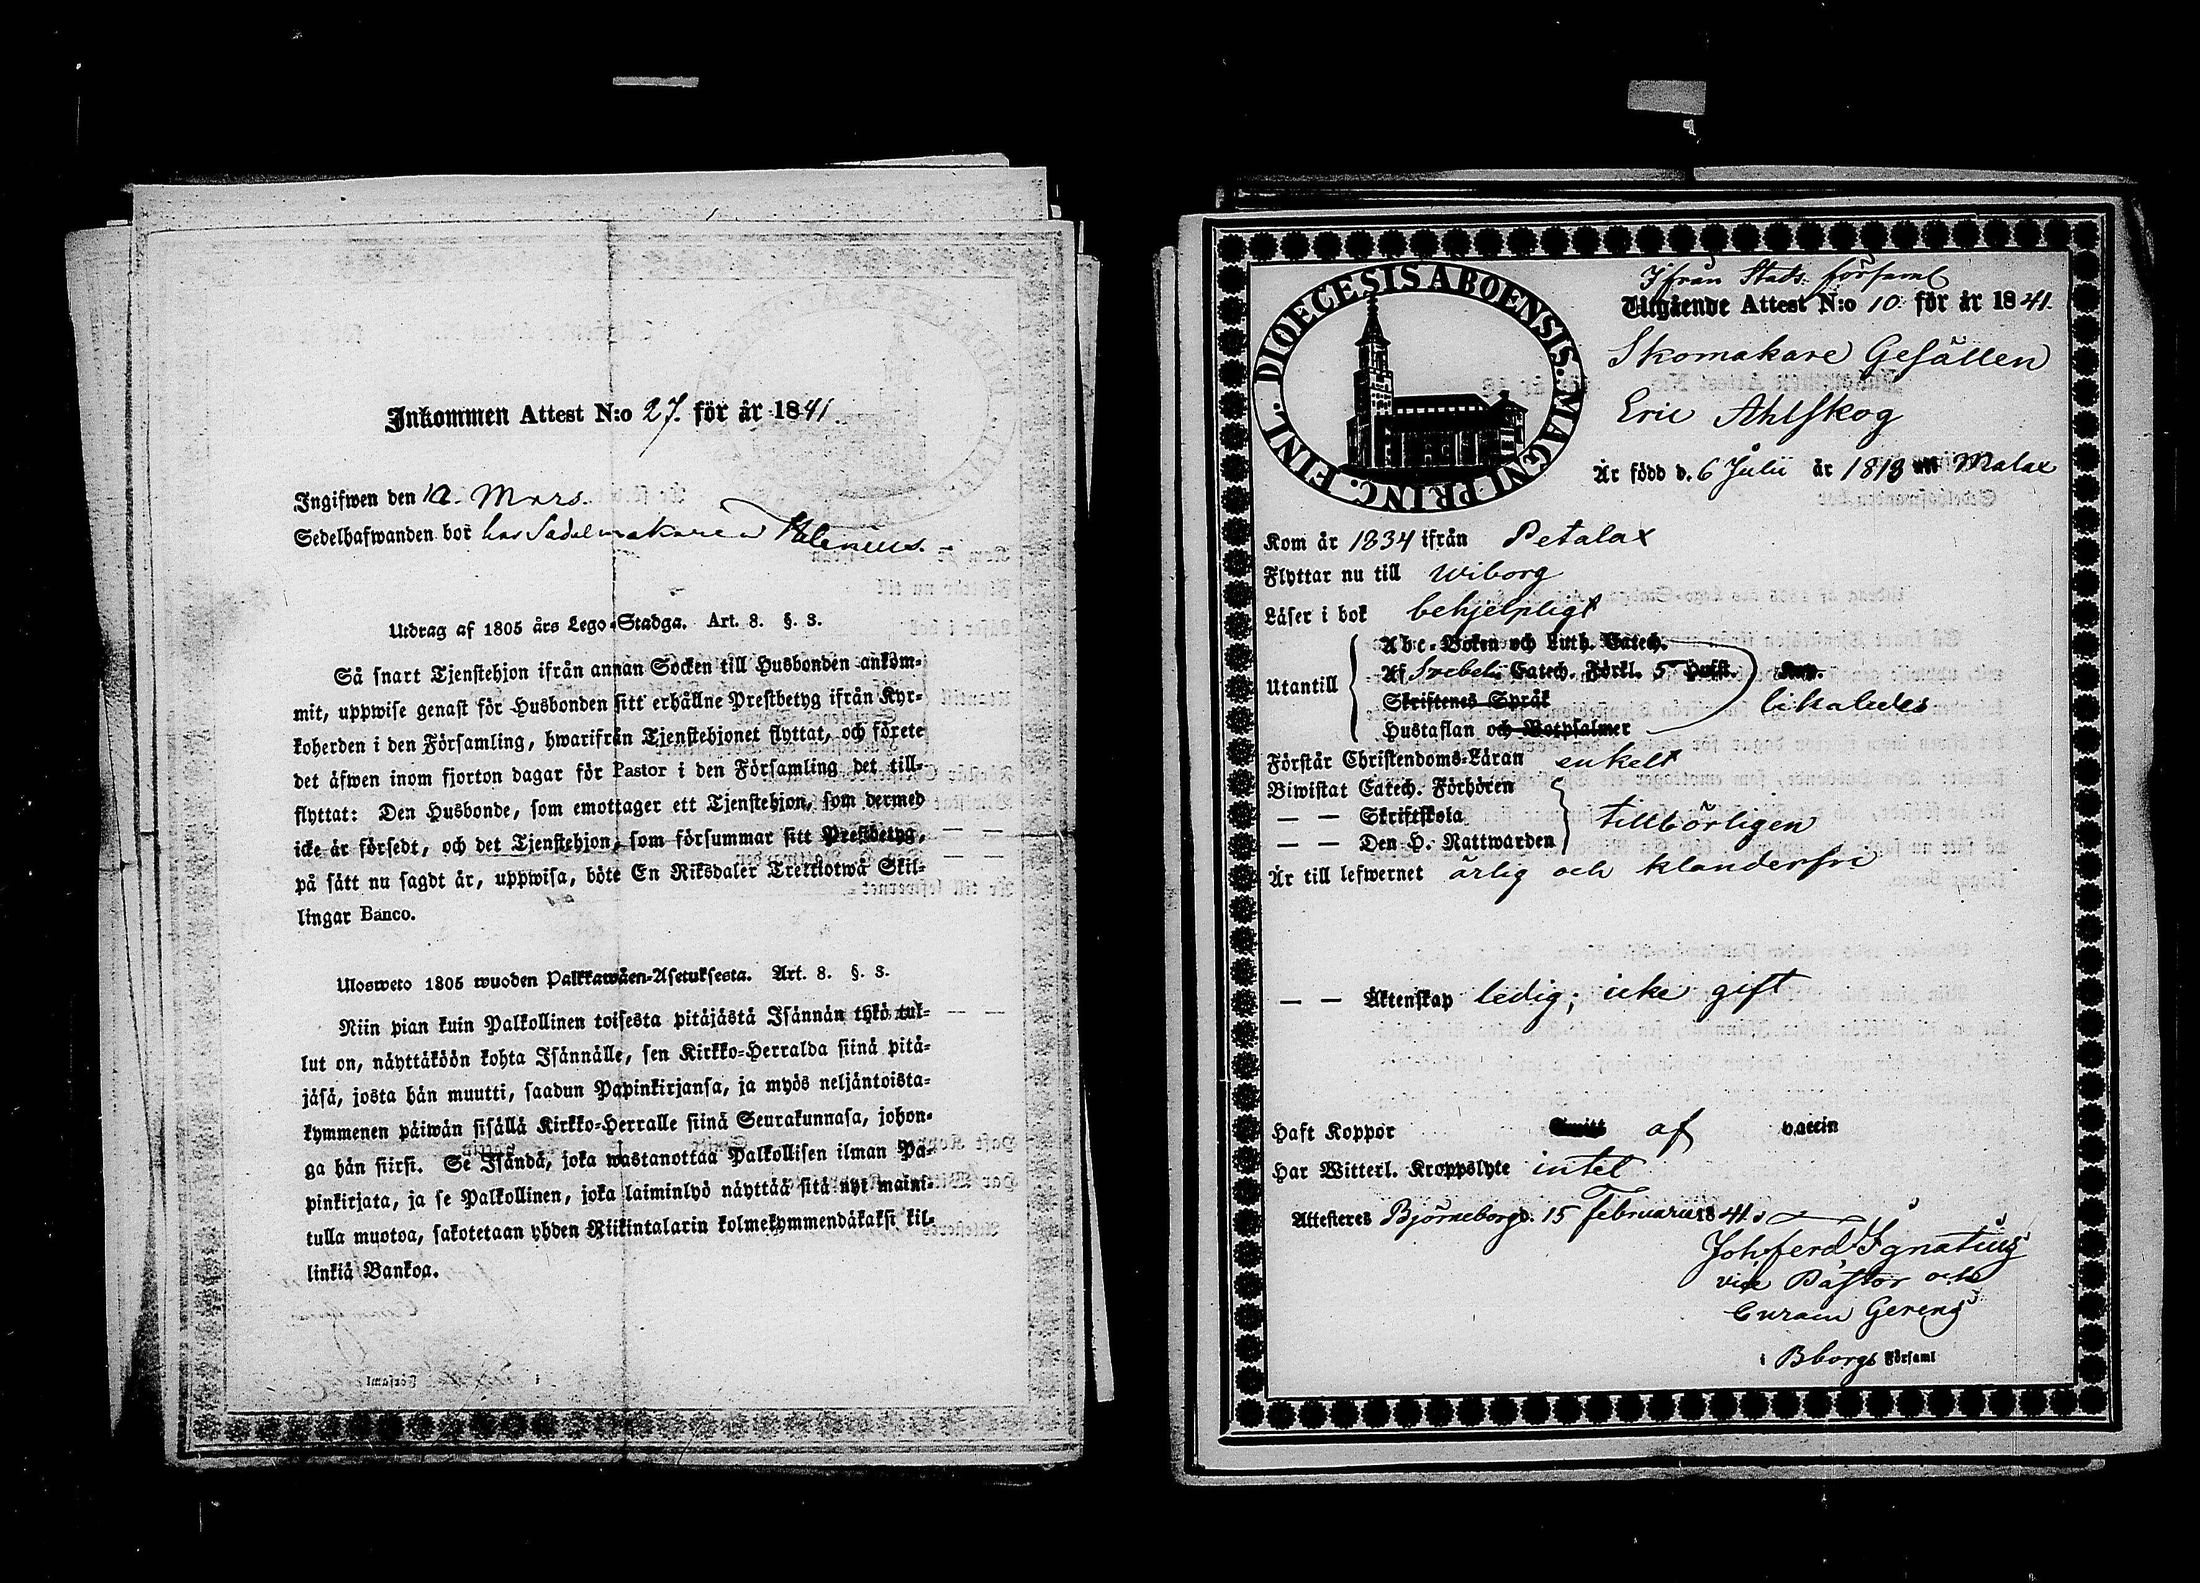 Inkommen Attest N:o 27. för år 1841.
Ingifwen den 12. Mars.
Sedelhafwanden bor hos Sadelmakaren
Utdrag af 1805 års Lego-Stadga. Art. 8. §. 3.
Så snart Tjenstehjon ifrån annan Socken till Husbonden ankom-
mit, uppwise genast för Husbonden sitt erhållne Prestbetyg ifrån Kyr-
koherden i den Församling, hwarifrån Tjenstehjonet flyttat, och förete
det äfwen inom fjorton dagar för Pastor i den Församling det till-
flyttat: Den Husbonde, som emottager ett Tjenstehjon, som dermed
icke är försedt, och det Tjenstehjon, som försummar sitt Prestbetyg,
på sätt nu sagdt är, uppwisa, böte En Riksdaler Trettiotwå Skil-
lingar Banco.
Ulosweto 1805 wuoden Palkkawäen-Asetuksesta. Art. 8. §. 3.
Niin pian kuin Palkollinen toisesta pitäjästä Isännän tykö tul-
lut on, näyttäköön kohta Isännälle, sen Kirkko-Herralda siinä pitä-
jäsä, josta hän muutti, saadun Papinkirjansa, ja myös neljäntoista-
kymmenen päiwän sisällä Kirkko-Herralle siinä Seurakunnasa, johon-
ga hän siirsi. Se Isändä, joka wastanottaa Palkollisen ilman Pa-
pinkirjata, ja se Palkollinen, joka laiminlyö näyttää sitä nyt maini-
tulla muotoa, sakotetaan yhden Riikintalarin kolmekymmendäkaksi kil-
linkiä Bankoa.
DIOECESIS ABOENSIS. MAGNI PRINC. FINL.
Ifrån Stads församl
Utgående Attest N:o 10 för år 1841.
Skomakare Gesällen
Eric Ahlskog
Är född d. 6 Julii år 1818 uti Malax
Kom år 1834 ifrån Petalax
Flyttar nu till Wiborg
Läser i bok behjelpligt
Utantill
Abc-Boken och Luth. Catech.
Af Svebelii Catech. Förkl. 5 Hufst. Kap.
Skriftenes Språk
Hustaflan och Botpsalmer
likaledes
Förstår Christendoms-Läran enkelt
Biwistat Catech. Förhören
— — Skriftskola
— — Den H. Nattwarden
tillbörligen
Är till lefwernet ärlig och klanderfri
— — Äktenskap ledig; icke gift
Haft Koppor af vaccin
Har Witterl. Kroppslyte intet
Attesteres Björneborg d. 15 Februarii 1841.
Joh Ferd Ignatius
vice Pastor och
Curam Gerens
i Bborgs Församl